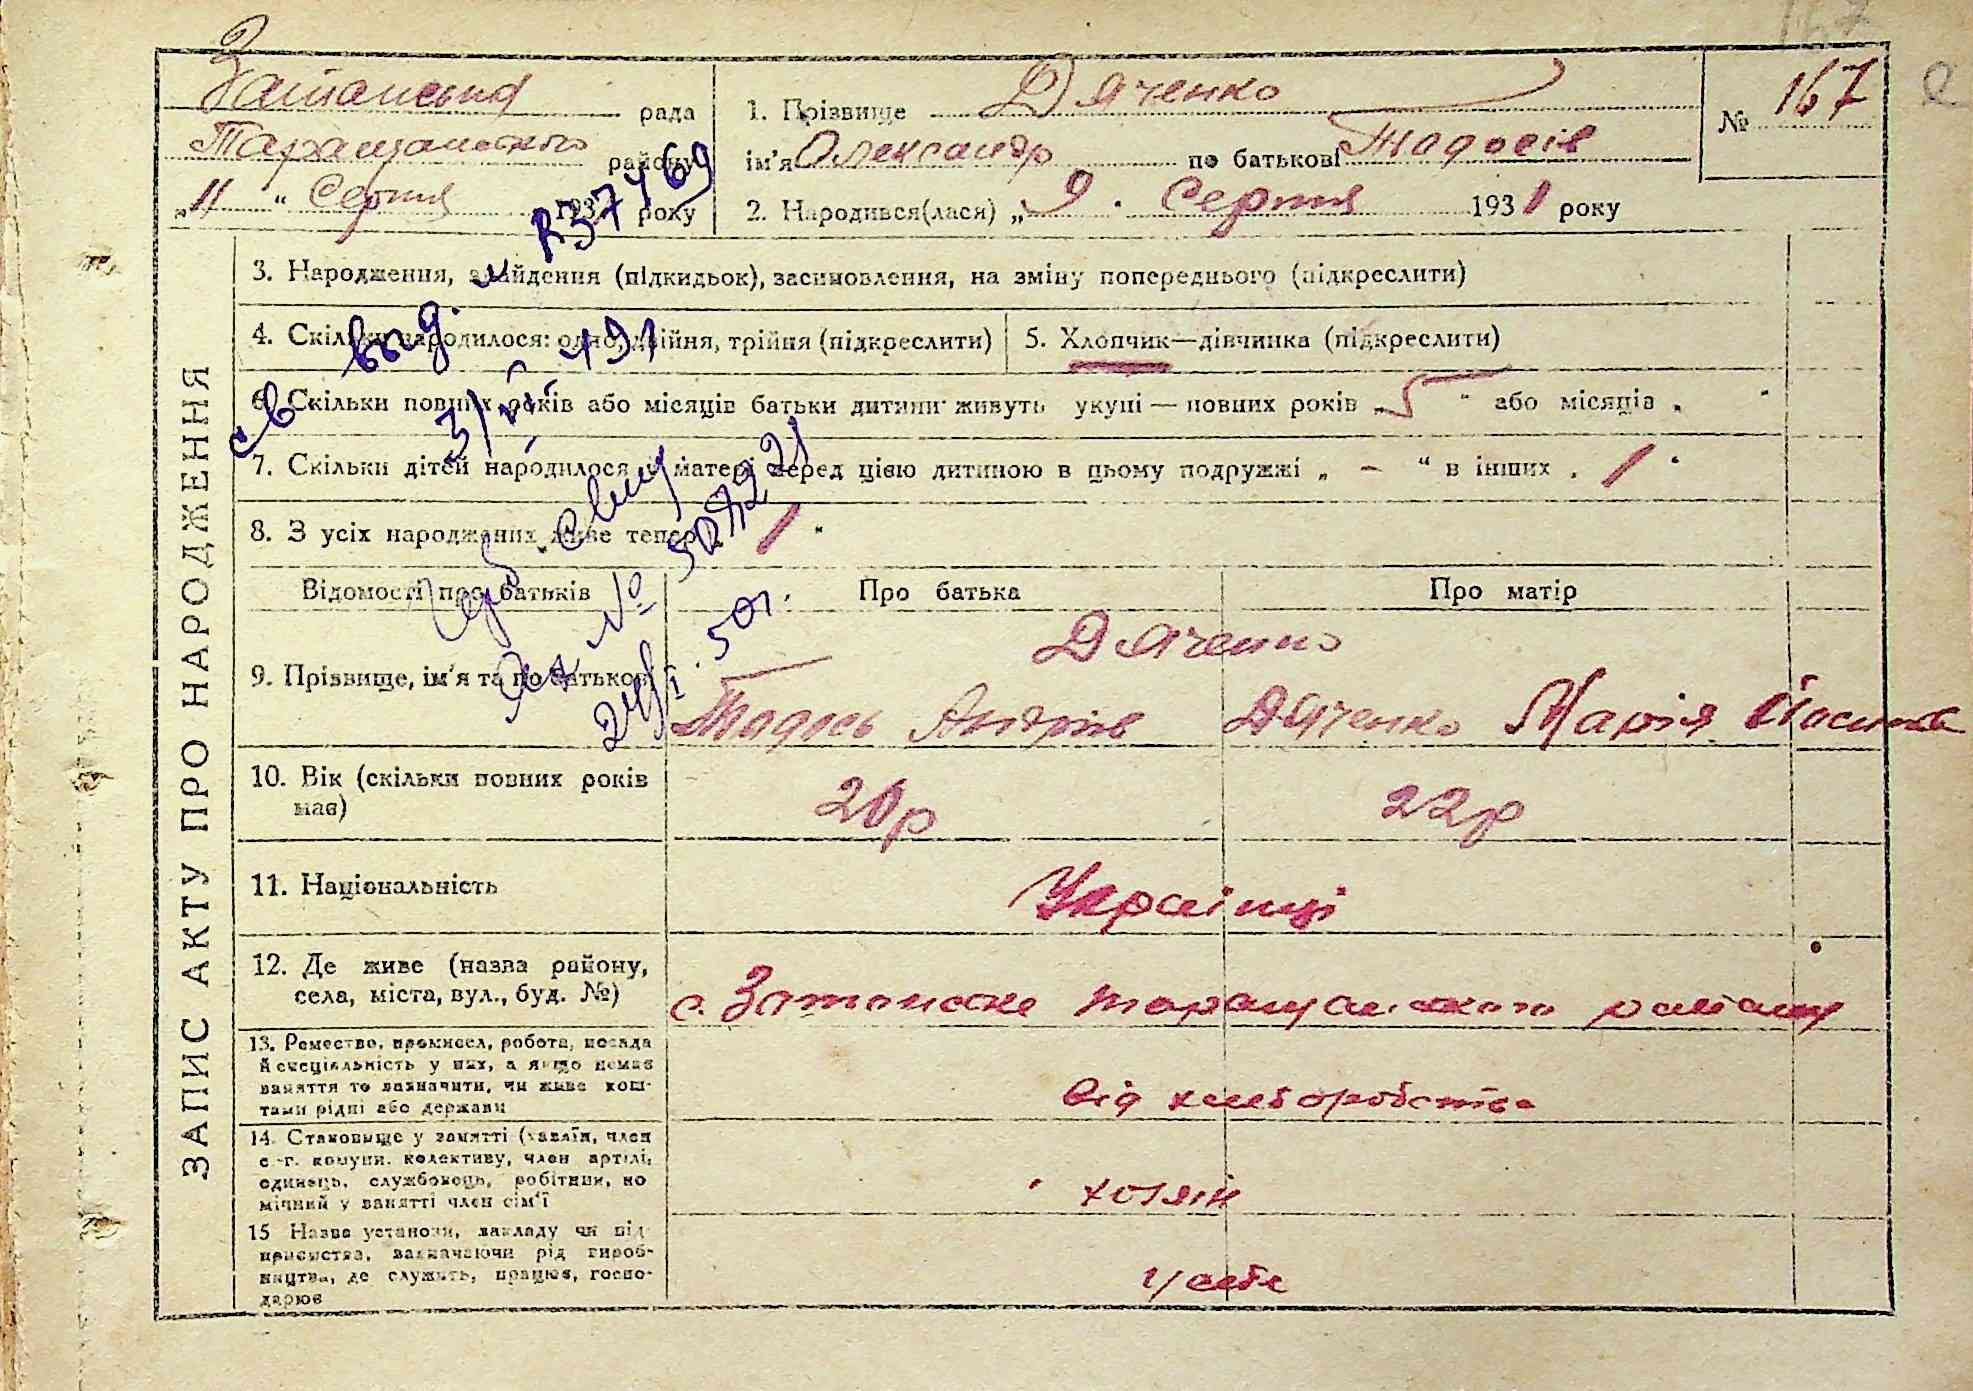 167
Затонська рада
Таращанського району
„11“ Серпня 1931 року
1. Прізвище Дяченко
ім'я Олександр по батькові Тодосів
2. Народився(лася) „9. Серпня 1931 року
№ 167
ЗАПИС АКТУ ПРО НАРОДЖЕННЯ
3. Народження, знайдення (підкидьок), засиновлення, на зміну попереднього (підкреслити)
4. Скільки народилося: одно, двійня, трійня (підкреслити)
5. Хлопчик—дівчинка (підкреслити)
6. Скільки повних років або місяців батьки дитини живуть укупі — повних років „5“ або місяців „ “
7. Скільки дітей народилося у матері перед цією дитиною в цьому подружжі „ – “ в інших „1“
8. З усіх народжених живе тепер „1“
св. выд. R37469
свид
№ 507221
24/I 50 г.
Відомості про батьків
Про батька
Про матір
9. Прізвище, ім'я та по батькові
Дяченко
Тодось Андріїв
Дяченко Марія Йосипів
10. Вік (скільки повних років
має)
20р
22р
11. Національність
Українці
12. Де живе (назва району,
села, міста, вул., буд. №)
с. Затонське Таращанського району
13. Ремество, промисел, робота, посада
й спеціяльність у них, а якщо немає
заняття то зазначити, чи живе кош-
тами рідні або держави
від хліборобства
14. Становище у занятті (хазяїн, член
с.-г. комуни, колективу, член артілі,
одинець, службовець, робітник, по
мічний у занятті член сім'ї
хозяїн
15 Назва установи, закладу чи під-
приємства, зазначаючи рід вироб-
ництва, де служить, працює, госпо-
дарює
у себе